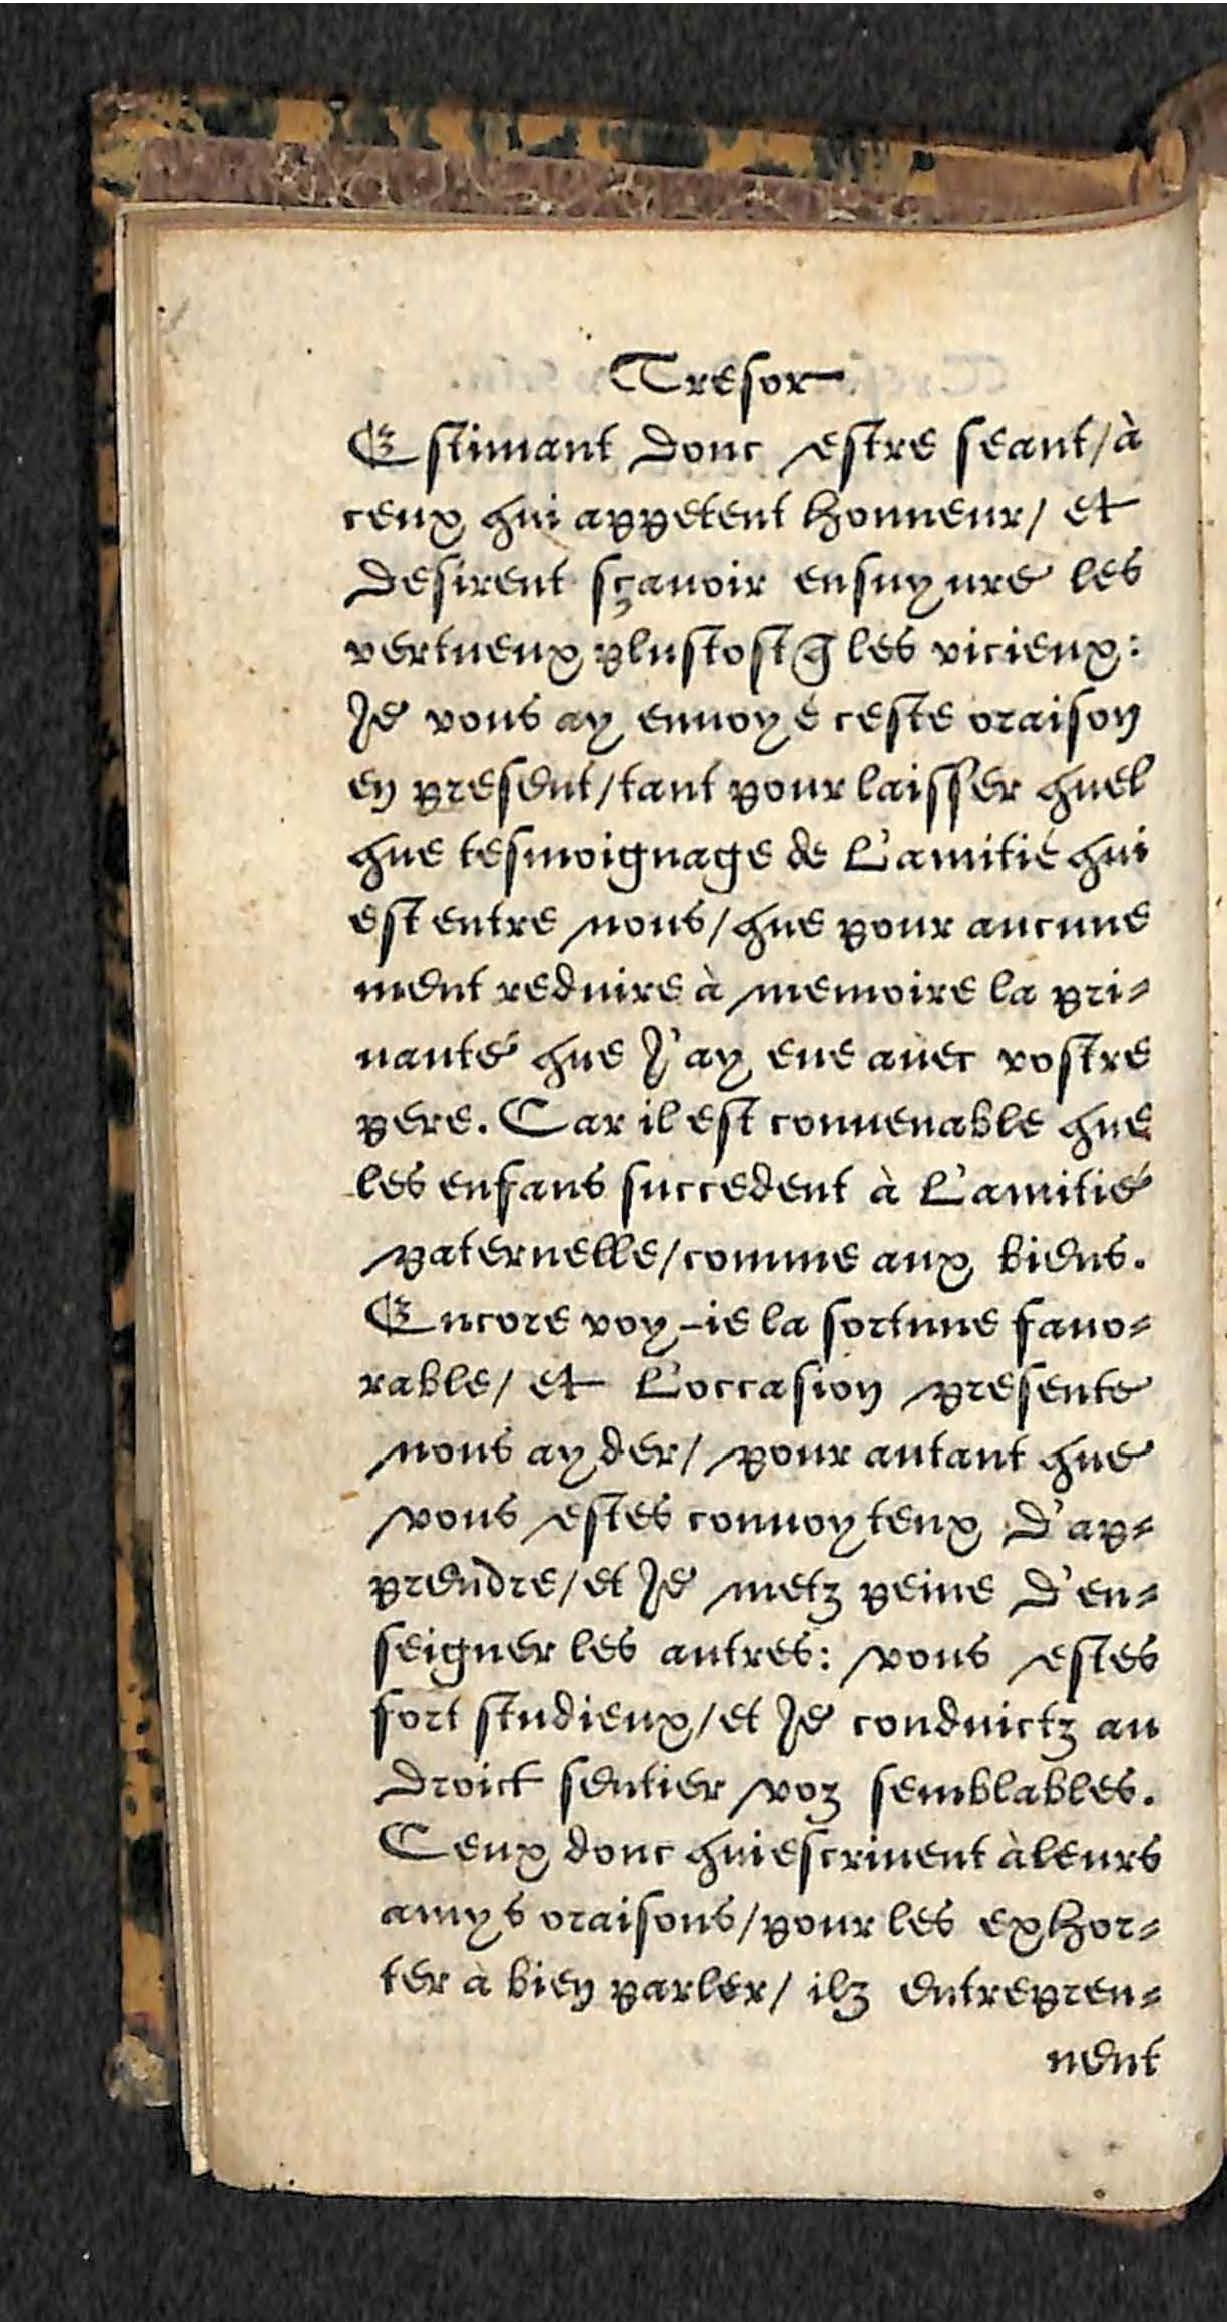 Tresor
Estimant donc estre seant/à
ceux qui appetent honneur/ et
desirent sçauoir ensuyure les
vertueux plustost q̃ les vicieux:
Je vous ay enuoyé ceste oraison
en present/tant pour laisser quel
que tesmoignage de L'amitié qui
est entre nous/que pour aucune
ment reduire à memoire la pri-
uauté que J'ay eue auec vostre
pere. Car il est conuenable que
les enfans succedent à L'amitié
paternelle/comme aux biens.
Encore voy-ie la fortune fauo-
rable/ et L'occasion presente
nous ayder/ pour autant que
vous estes conuoyteux D'ap-
prendre/et Je metz peine D'en-
seigner les autres: vous estes
fort studieux/et Je conduictz au
droict sentier voz semblables.
Ceux donc qui escriuent à leurs
amys oraisons/pour les exhor-
ter à bien parler/ ilz entrepren-
nent